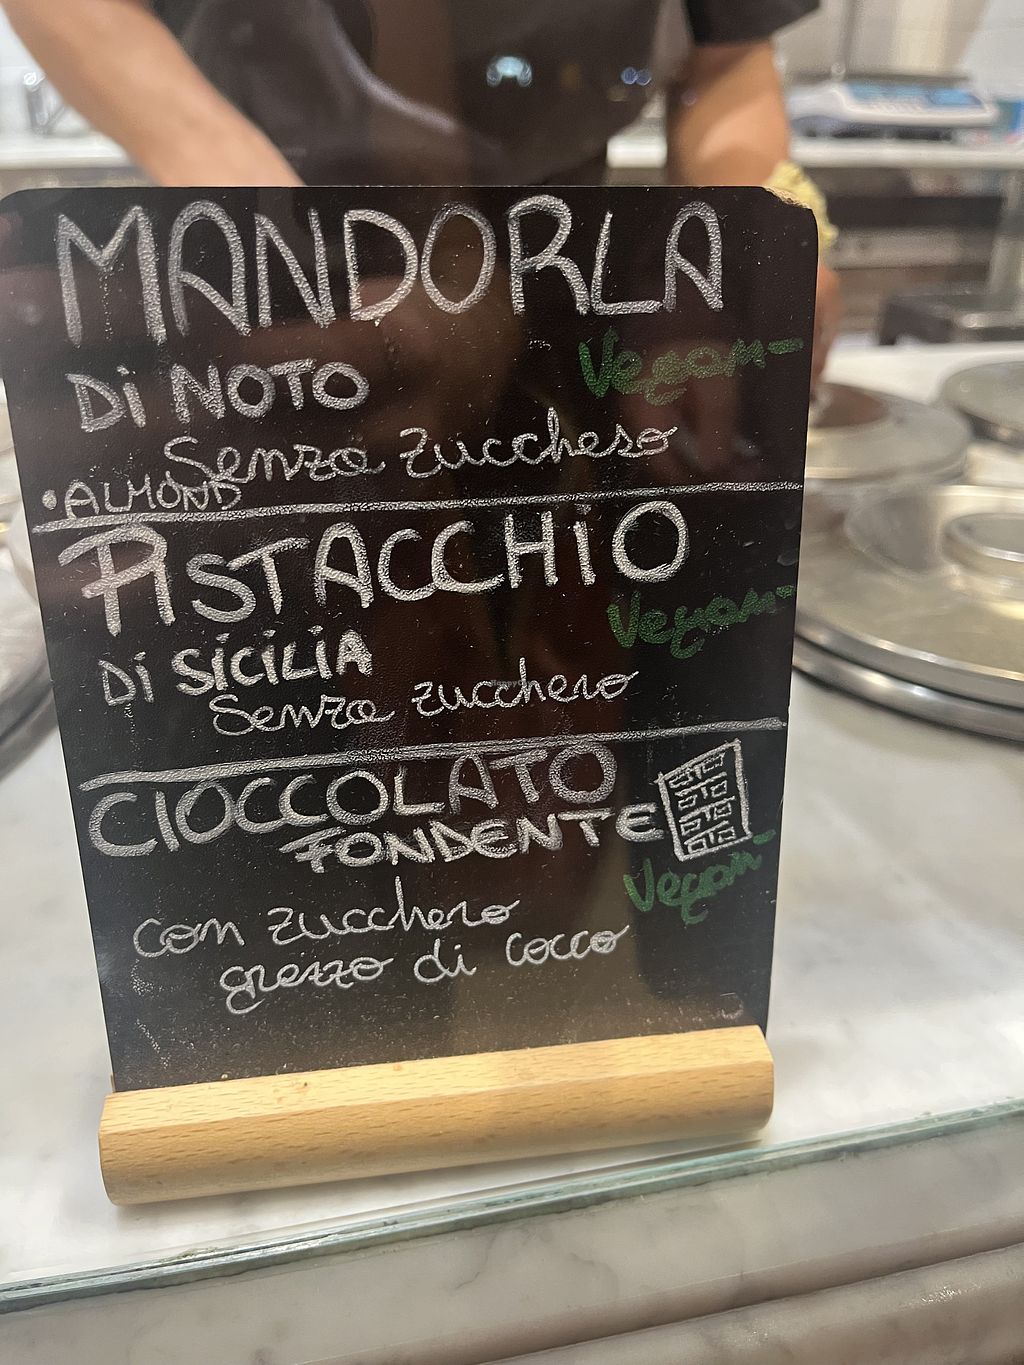 MANDORLA
Di NOTO
Vegan-
Senza zucchero
•ALMOND
PISTACCHiO
Vegan-
Di SiCiLiA
Senza zucchero
CIOCCOLATO
FONDENTE
Vegan-
con zucchero
grezzo di cocco